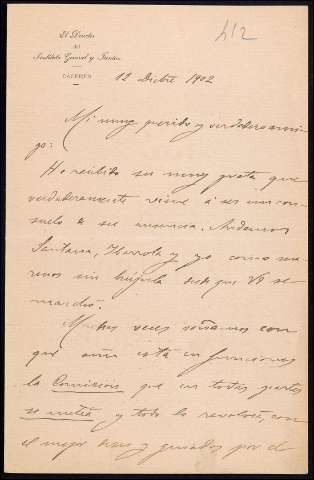 412
El Director
del
Instituto General y Técnico
CÁCERES
12 Dicbre 1902
Mi muy querido y verdadero ami-
go:
He recibido su muy grata que
verdaderamente viene á ser un con-
suelo á su ausencia. Andamos
Santana, Ibarrola y yo como ma-
rinos sin brújula desde que Vd se
marchó.
Muchas veces soñamos con
que aún está en funciones
la Comisión que en todas partes
se metía y todo lo revolvía, con
el mejor deseo y guiados por el